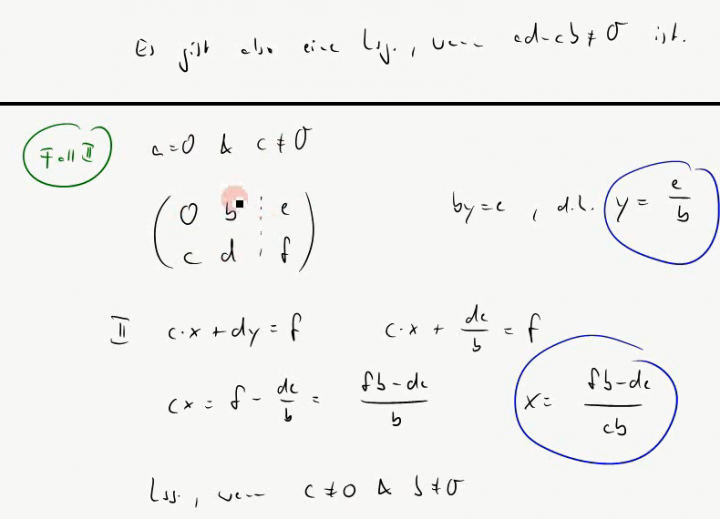 Es gibt also eine Lsg., wenn ad-cb ≠ 0 ist.
Fall II a=0 & c ≠ 0
( 0 b ⋮ e ) by=e , d.h. y = e/b
( c d ⋮ f )
II c·x + dy = f c·x + de/b = f
cx = f - de/b = (fb-de)/b x = (fb-de)/cb
Lsg., wenn c ≠ 0 & b ≠ 0